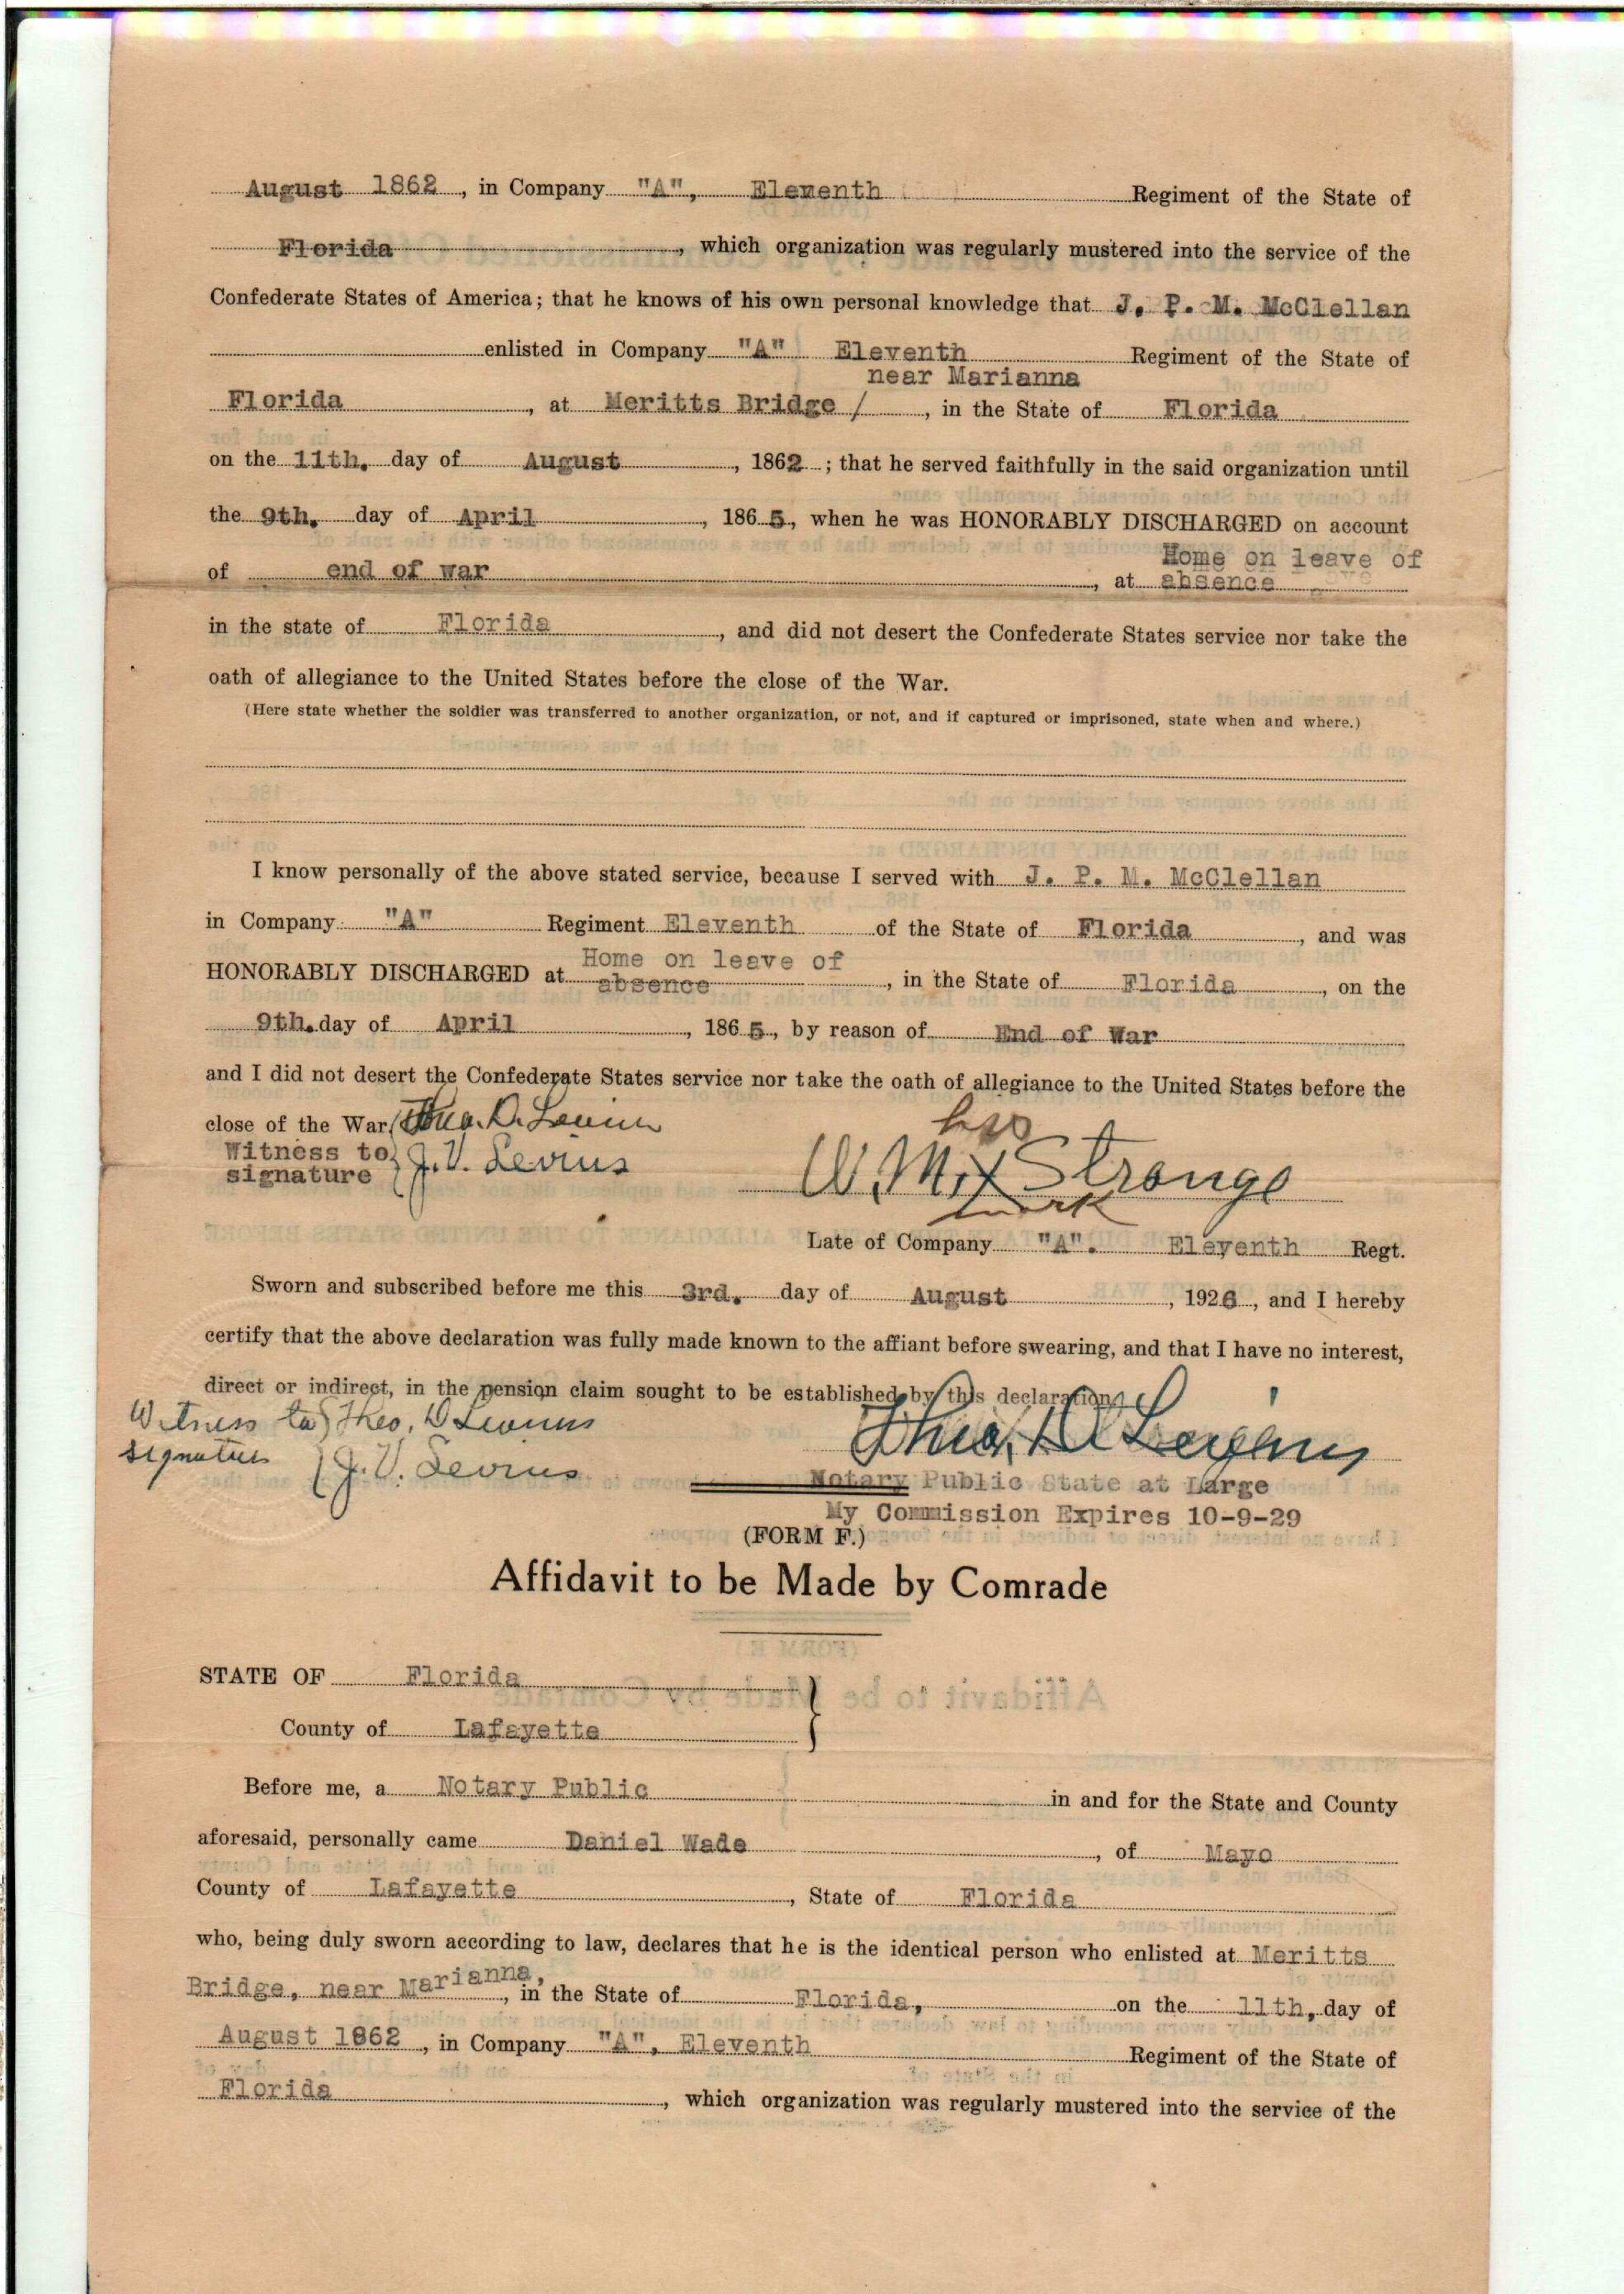 August 1862, in Company "A", Elementh Regiment of the State of
Florida, which organization was regularly mustered into the service of the
Confederate States of America; that he knows of his own personal knowledge that J. P. M. McClellan
enlisted in Company "A" Eleventh Regiment of the State of
near Marianna
Florida, at Meritts Bridge /, in the State of Florida
on the 11th. day of August, 1862; that he served faithfully in the said organization until
the 9th. day of April, 1865, when he was HONORABLY DISCHARGED on account
Home on leave of
of end of war, at absence
in the state of Florida, and did not desert the Confederate States service nor take the
oath of allegiance to the United States before the close of the War.
(Here state whether the soldier was transferred to another organization, or not, and if captured or imprisoned, state when and where.)
I know personally of the above stated service, because I served with J. P. M. McClellan
in Company "A" Regiment Eleventh of the State of Florida, and was
Home on leave of
HONORABLY DISCHARGED at absence, in the State of Florida, on the
9th. day of April, 1865, by reason of End of War
and I did not desert the Confederate States service nor take the oath of allegiance to the United States before the
close of the War. Theo. D. Levins
his
Witness to J. V. Levins
signature
W. M. x Strange
mark
Late of Company "A". Eleventh Regt.
Sworn and subscribed before me this 3rd. day of August, 1926, and I hereby
certify that the above declaration was fully made known to the affiant before swearing, and that I have no interest,
direct or indirect, in the pension claim sought to be established by this declaration.
Witness to Theo. D Levins
signature J. V. Levins
Theo. D. Levins
Notary Public State at Large
My Commission Expires 10-9-29
(FORM F.)
Affidavit to be Made by Comrade
STATE OF Florida
County of Lafayette
Before me, a Notary Public in and for the State and County
aforesaid, personally came Daniel Wade, of Mayo
County of Lafayette, State of Florida
who, being duly sworn according to law, declares that he is the identical person who enlisted at Meritts
Bridge, near Marianna, in the State of Florida, on the 11th, day of
August 1862, in Company "A", Eleventh Regiment of the State of
Florida, which organization was regularly mustered into the service of the